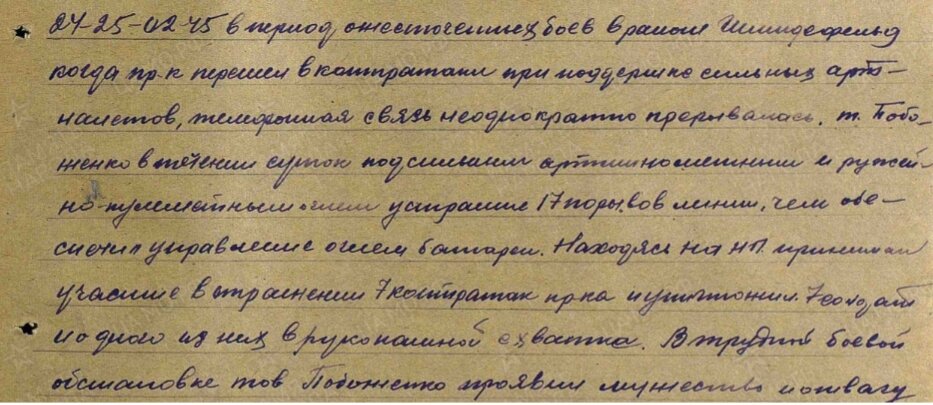 24-25-02-45 в период ожесточенных боев в районе Шмидефельд
когда пр-к перешел в контратаки при поддержке сильных арт-
налетов, телефонная связь неоднократно прерывалась. т. Побо-
женко в течении суток под сильным артминометным и ружей-
но-пулеметным огнем устранил 17 порывов линии, чем обе-
спечил управление огнем батареи. Находясь на НП принимал
участие в отражении 7 контратак пр-ка и уничтожил 7 солдат
и одного из них в рукопашной схватке. В трудной боевой
обстановке тов Побоженко проявил мужество и отвагу